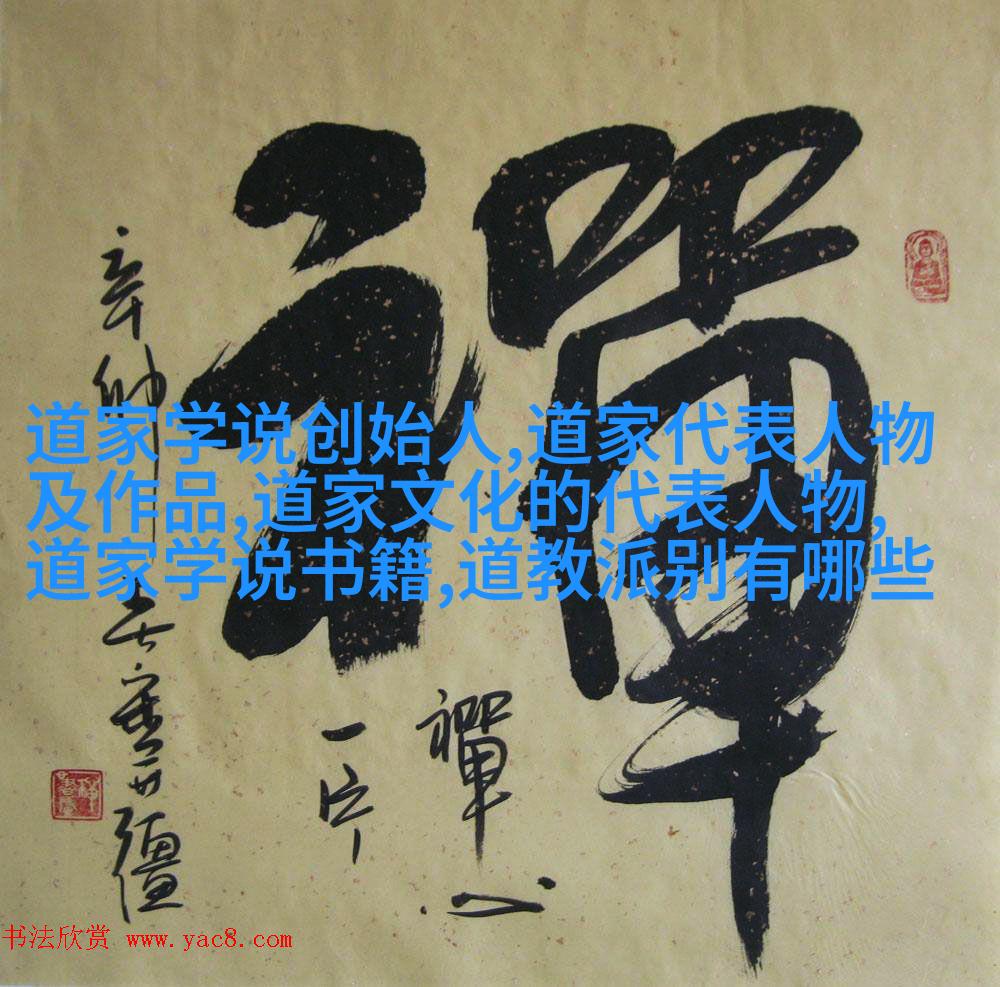 禪
道家学说创始人,道家代表人物
及作品,道家文化的代表人物,
道家学说书籍,道教派别有哪些
禪心
一片
辛卯
书法欣赏 www.yac8.com